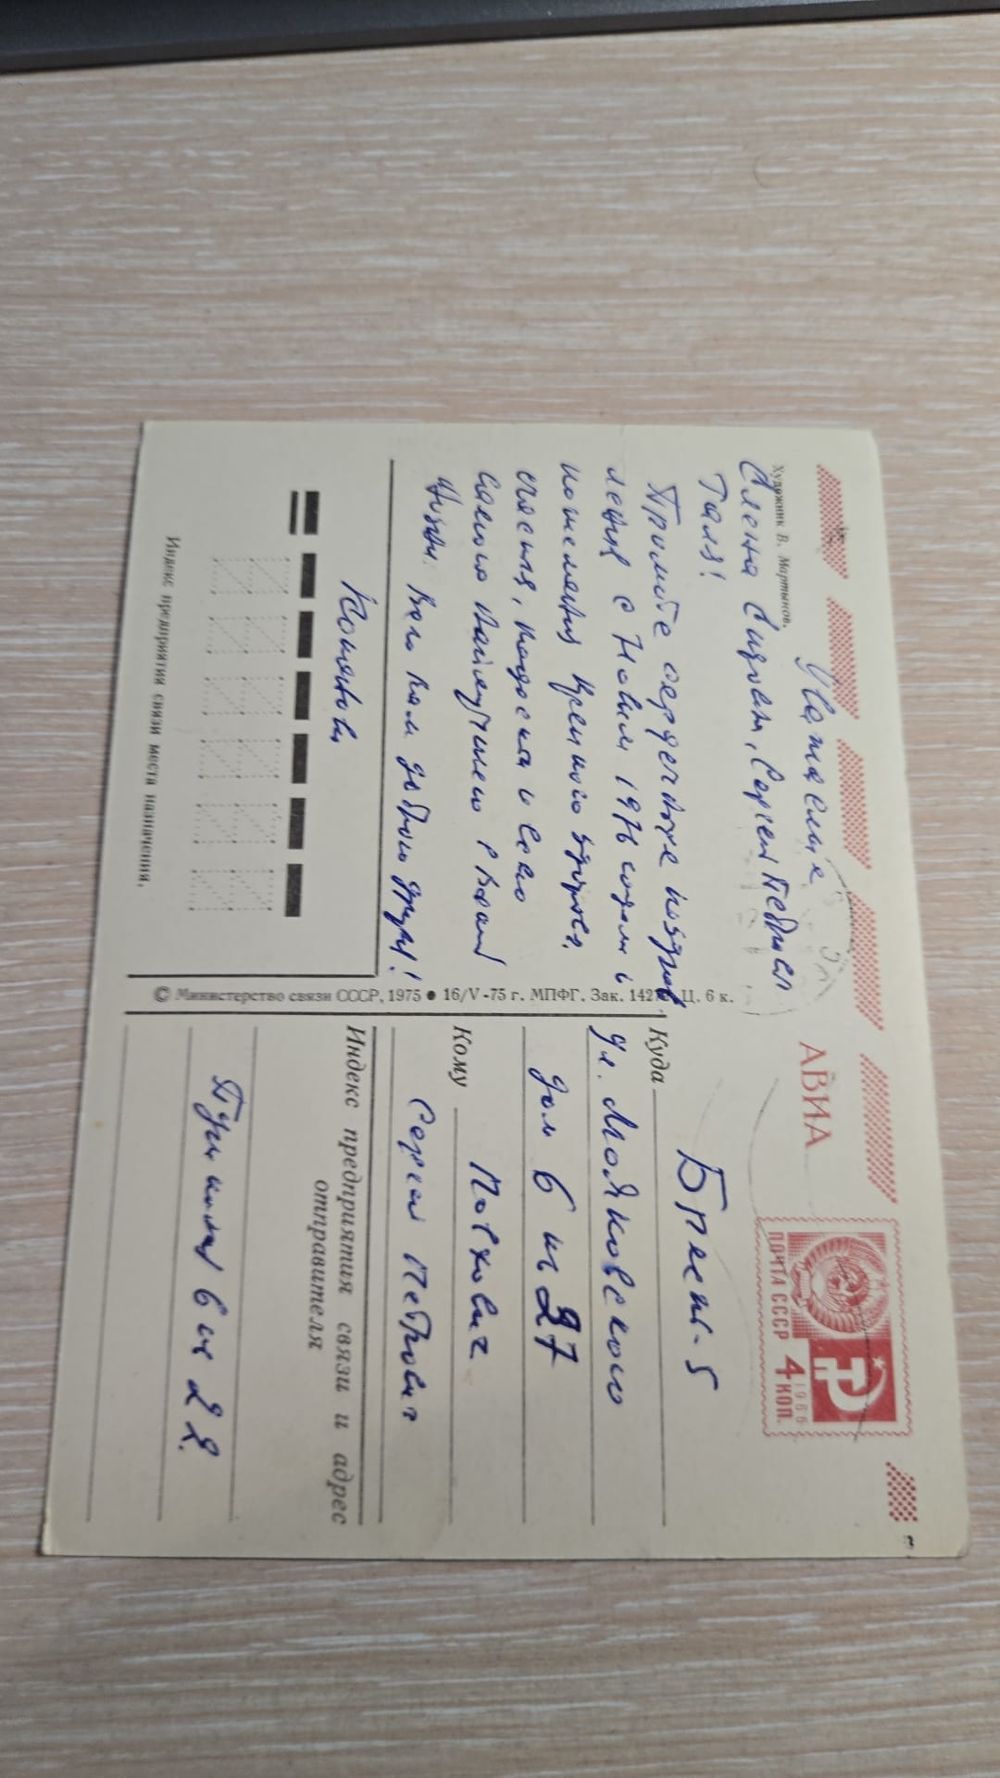 Художник В. Мартынов.
Уважаемые
Елена Сергей Петрович,
Галя!
Примите сердечные поздрав
ления с Новым 1976 годом и
пожелания крепкого здоровья,
счастья, радости и всего
самого наилучшего в Вашей
жизни. Всего Вам доброго друзья!
Индекс предприятия связи места назначения.
© Министерство связи СССР, 1975 ● 16/V-75 г. МПФГ. Зак. Ц. 6 к.
АВИА
ПОЧТА СССР
1966
4 КОП.
Куда
Брест-5
ул. Маяковского
дом 6 кв 27
Кому
Повхович
Сергей Петрович
Индекс предприятия связи и адрес
отправителя
6 кв 22.